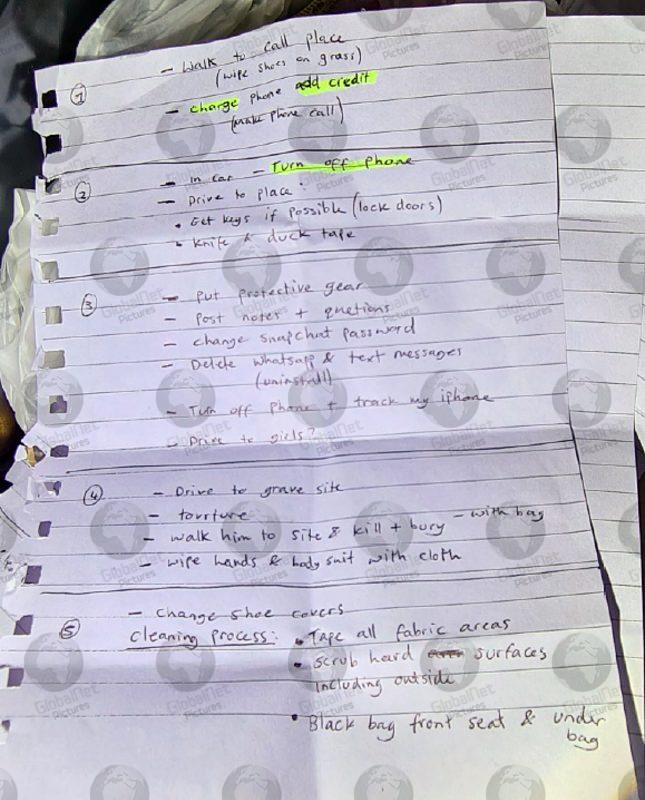 ①
- Walk to call place
(wipe shoes on grass)
- charge phone add credit
(make phone call)
②
- In car - Turn off phone
- Drive to place:
• Get keys if possible (lock doors)
• Knife & duck tape
③
- Put protective gear
- Post notes + quetions
- change snapchat password
- Delete whatsapp & text messages
(uninstall)
- Turn off phone + track my iphone
- Drive to girls?
④
- Drive to grave site
- tourture
- walk him to site & kill + bury - with bag
- wipe hands & body suit with cloth
⑤
- change shoe covers
Cleaning process: • Tape all fabric areas
• scrub hard surfaces
including outside
• Black bag front seat & under
bag
GlobalNet
Pictures